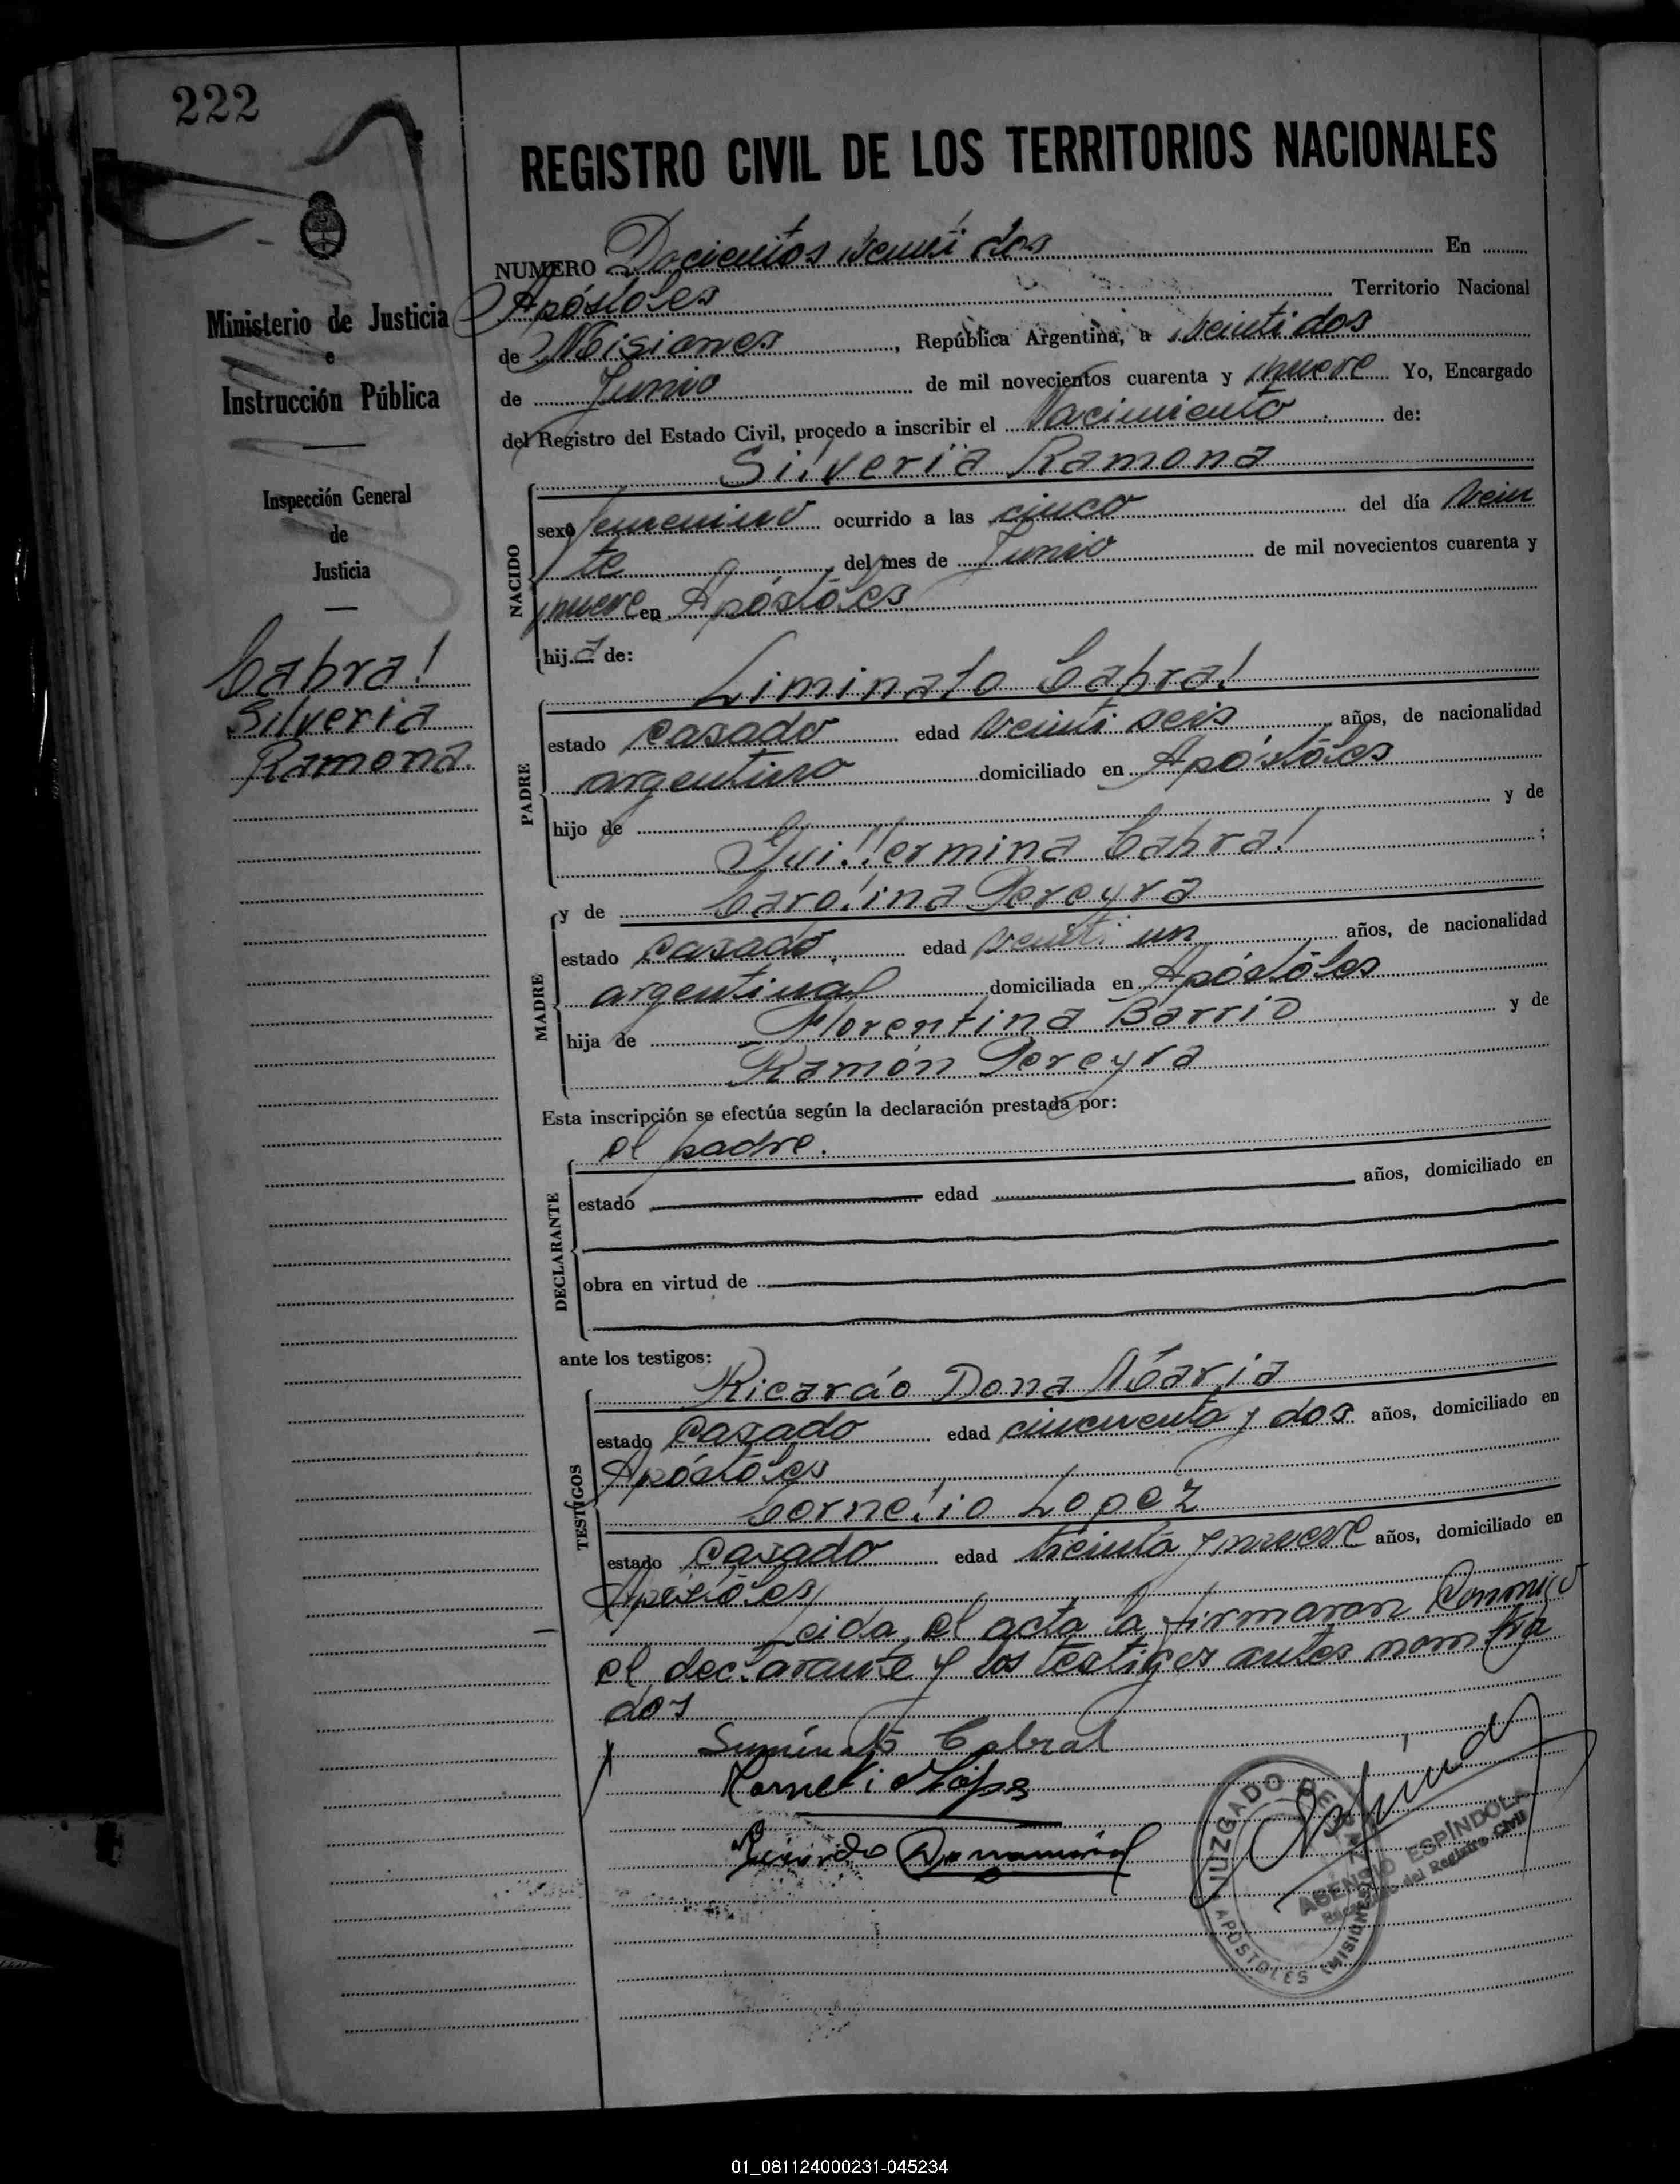 222
REGISTRO CIVIL DE LOS TERRITORIOS NACIONALES
Ministerio de Justicia
e
Instrucción Pública
Inspección General
de
Justicia
Cabral
Silveria
Ramona.
NUMERO Docientos veinti dos En
Apóstoles Territorio Nacional
de Misiones, República Argentina, a veinti dos
de Junio de mil novecientos cuarenta y nueve Yo, Encargado
del Registro del Estado Civil, procedo a inscribir el Nacimiento de:
Silveria Ramona
NACIDO
sexo femenino ocurrido a las cinco del día vein
te del mes de Junio de mil novecientos cuarenta y
nueve en Apóstoles
hija de:
Liminato Cabral
PADRE
estado casado edad veinti seis años, de nacionalidad
argentino domiciliado en Apóstoles
hijo de y de
Guillermina Cabral ;
y de Carolina Pereyra
MADRE
estado casado. edad veinti un años, de nacionalidad
argentina domiciliada en Apóstoles
hija de Florentina Barrio y de
Ramón Pereyra
Esta inscripción se efectúa según la declaración prestada por:
el padre.
DECLARANTE
estado edad años, domiciliado en
obra en virtud de
ante los testigos:
TESTIGOS
Ricardo Dona María
estado Casado edad cincuenta y dos años, domiciliado en
Apóstoles
Cornelio Lopez
estado Casado edad treinta y nueve años, domiciliado en
Apóstoles
Leida el acta la firmaran Conmigo
el declarante y los testigos antes nombra
dos
Cabral
JUZGADO DE PAZ
APOSTOLES (MISIONES)
ASENSIO ESPÍNDOLA
Encargado del Registro Civil
01_081124000231-045234